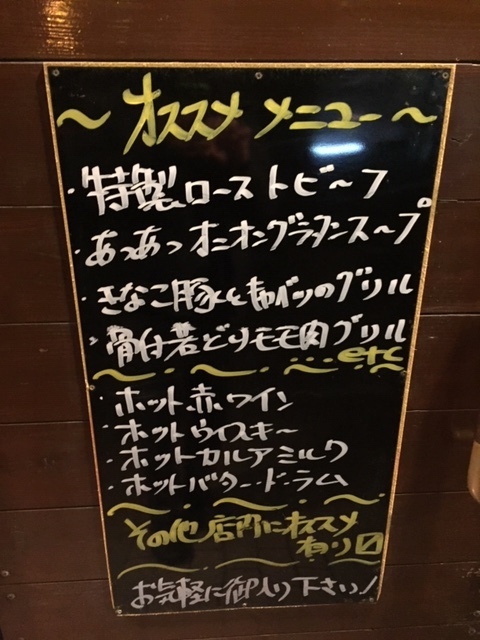 ～ オススメ メニュー ～
・特製ローストビーフ
・あつあつオニオングラタンスープ
・きなこ豚と春キャベツのグリル
・骨付若どりモモ肉グリル
etc
・ホット赤ワイン
・ホットウイスキー
・ホットカルアミルク
・ホットバタードラム
その他店内にオススメ
有り〼
お気軽に御入り下さい！